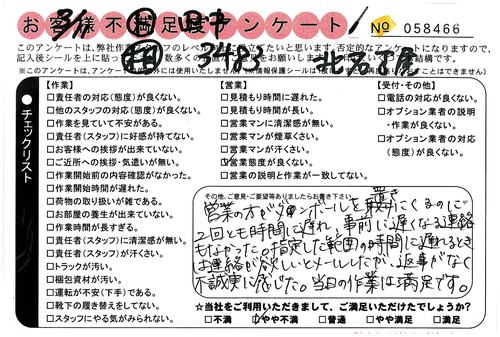 お客様不満足度アンケート
№ 058466
3483
作業
【作業】
□責任者の対応(態度)が良くない。
□他のスタッフの対応(態度)が良くない。
□作業を見ていて不安がある。
□責任者(スタッフ)に好感が持てない。
□お客様への挨拶が出来ていない。
□ご近所への挨拶・気遣いが無い。
□作業開始前の内容確認がなかった。
□作業開始時間が遅れた。
□荷物の取り扱いが雑である。
□お部屋の養生が出来ていない。
□作業時間が長すぎる。
□責任者(スタッフ)に清潔感が無い。
□責任者(スタッフ)が汗くさい。
□トラックが汚い。
□梱包資材が汚い。
□運転が不安(下手)である。
□靴下の履き替えをしてない。
□スタッフにやる気がみられない。
【営業】
□見積もり時間に遅れた。
□見積もり時間が長い。
□営業マンが煙草くさい。
□営業マンが汗くさい。
□営業マンに清潔感が無い。
□営業態度が良くない。
□営業の説明と作業が一致してない。
【受付・その他】
□電話の対応が良くない。
□オプション業者の説明
・作業が良くない。
□オプション業者の対応
(態度)が良くない。
チェックリスト
その他、ご意見・ご要望等ありましたらお書き下さい。
営業の方がダンボールを置きにくるのに
2回とも時間に遅れ、事前に遅くなる連絡
もなかった。指定した範囲の時間に遅れるとき
は連絡が欲しいとメールしたが、返事がなく
不誠実に感じた。当日の作業は満足です。
★当社をご利用いただきまして、ご満足いただけたでしょうか?
□不満 □やや不満 □普通 □やや満足 □満足